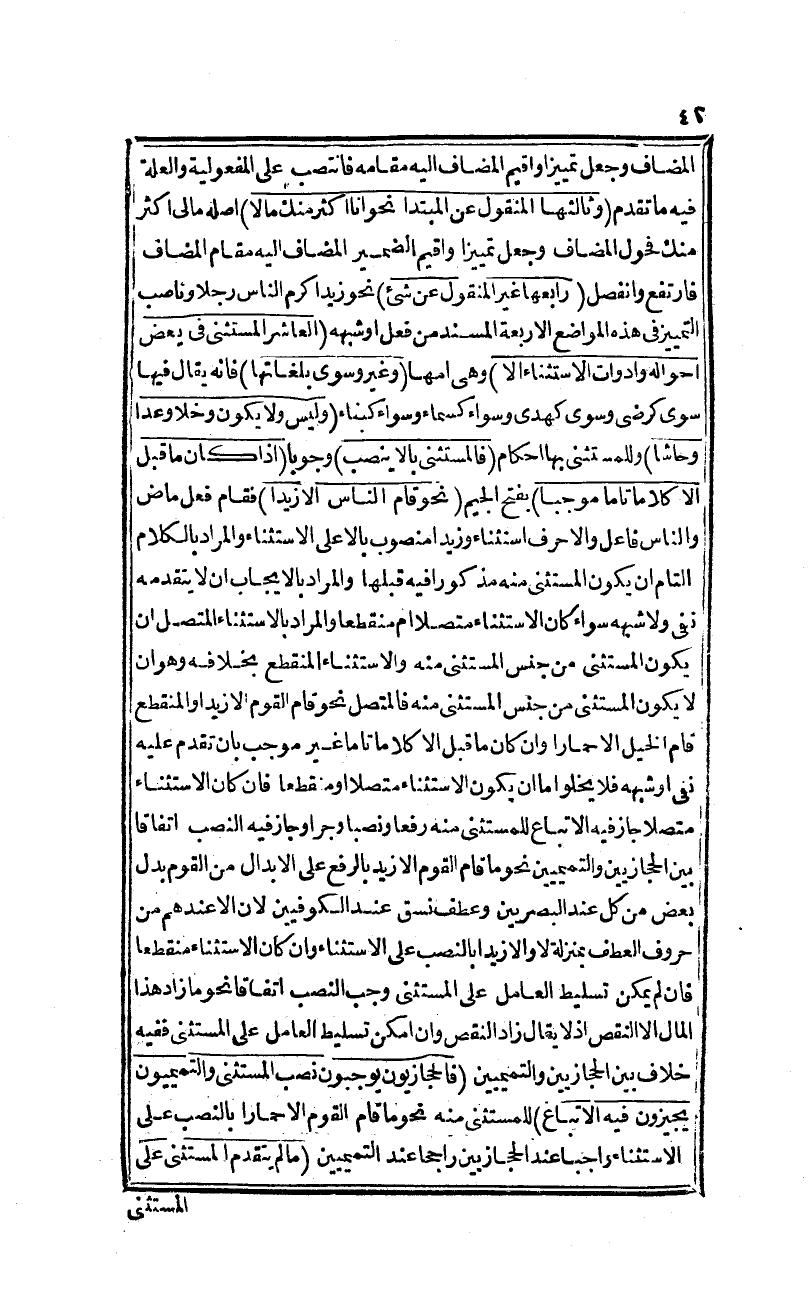 ٤٢
المضاف وجعل تمييزا واقيم المضاف اليه مقامه فانتصب على المفعولية والعلة
فيه ما تقدم (وثالثها المنقول عن المبتدا نحو انا اكثر منك مالا) اصله مالى اكثر
منك فحول المضاف وجعل تمييزا واقيم الضمير المضاف اليه مقام المضاف
فارتفع وانفصل (رابعها غير المنقول عن شئ) نحو زيد اكرم الناس رجلا وناصب
التمييز فى هذه المواضع الاربعة المسند من فعل او شبهه (العاشر المستثنى فى بعض
احواله وادوات الاستثناء الا) وهى امها (وغير وسوى بلغاتها) فانه يقال فيها
سوى كرضى وسوى كهدى وسواء كسماء وسواء كبناء (وليس ولا يكون وخلا وعدا
وحاشا) وللمستثنى بها احكام (فالمستثنى بالا ينصب) وجوبا (اذا كان ما قبل
الا كلاما تاما موجبا) بفتح الجيم (نحو قام الناس الا زيدا) فقام فعل ماض
والناس فاعل والا حرف استثناء وزيدا منصوب بالا على الاستثناء والمراد بالكلام
التام ان يكون المستثنى منه مذكورا فيه قبلها والمراد بالايجاب ان لا يتقدمه
نفى ولا شبهه سواء كان الاستثناء متصلا ام منقطعا والمراد بالاستثناء المتصل ان
يكون المستثنى من جنس المستثنى منه والاستثناء المنقطع بخلافه وهو ان
لا يكون المستثنى من جنس المستثنى منه فالمتصل نحو قام القوم الا زيدا والمنقطع
قام الخيل الا حمارا وان كان ما قبل الا كلاما تاما غير موجب بان تقدم عليه
نفى او شبهه فلا يخلوا ما ان يكون الاستثناء متصلا او منقطعا فان كان الاستثناء
متصلا جاز فيه الاتباع للمستثنى منه رفعا ونصبا وجرا وجاز فيه النصب اتفاقا
بين الحجازيين والتميميين نحو ما قام القوم الا زيد بالرفع على الابدال من القوم بدل
بعض من كل عند البصريين وعطف نسق عند الكوفيين لان الا عندهم من
حروف العطف بمنزلة لا والا زيدا بالنصب على الاستثناء وان كان الاستثناء منقطعا
فان لم يمكن تسليط العامل على المستثنى وجب النصب اتفاقا نحو ما زاد هذا
المال الا النقص اذ لا يقال زاد النقص وان امكن تسليط العامل على المستثنى ففيه
خلاف بين الحجازيين والتميميين (فالحجازيون يوجبون نصب المستثنى والتميميون
يجيزون فيه الاتباع) للمستثنى منه نحو ما قام القوم الا حمارا بالنصب على
الاستثناء واجبا عند الحجازيين راجحا عند التميميين (ما لم يتقدم المستثنى على
المستثنى